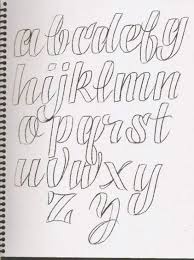 abcdefg
hijklmn
opqrst
uvwxy
z y